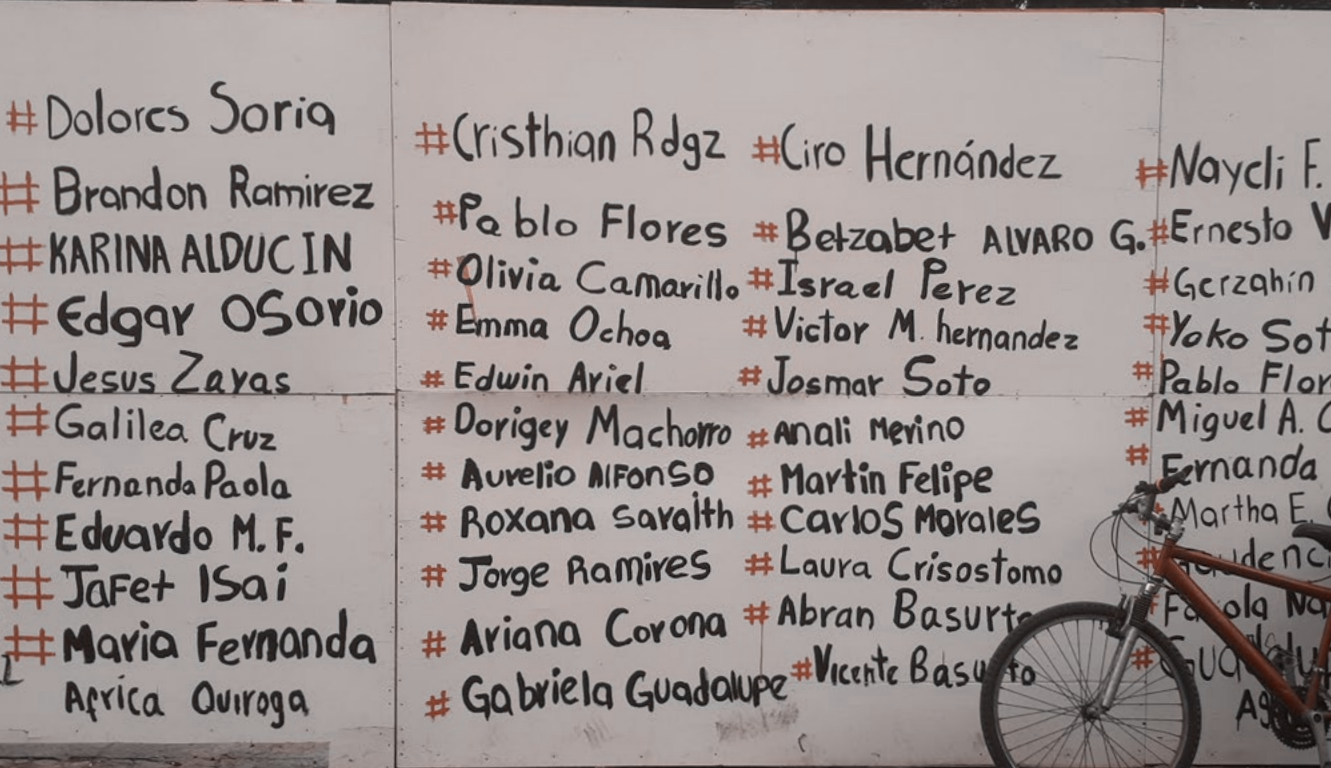 #Dolores Soria
# Brandon Ramirez
#KARINA ALDUCIN
#Edgar OSorio
#Jesus Zayas
#Galilea Cruz
#Fernanda Paola
#Eduardo M. F.
#Jafet ISai
#Maria Fernanda
Africa Quiroga
#Cristhian Rdgz
#Pablo Flores
#Olivia Camarillo
#Emma Ochoa
# Edwin Ariel
# Dorigey Machorro
# Aurelio AlFonso
# Roxana Saraith
# Jorge Ramires
# Ariana Corona
# Gabriela Guadalupe
#Ciro Hernández
#Betzabet ALVARO G.
#Israel Perez
#Victor M. hernandez
#Josmar Soto
#Anali Merino
#Martin Felipe
#CARLOS MoRALES
#Laura Crisostomo
# Abran Basurto
#Vicente Basurto
#Nayeli F.
#Ernesto
#Gerzahin
#Yoko
#Pablo
# Miguel A.
# Fernanda
Martha E.